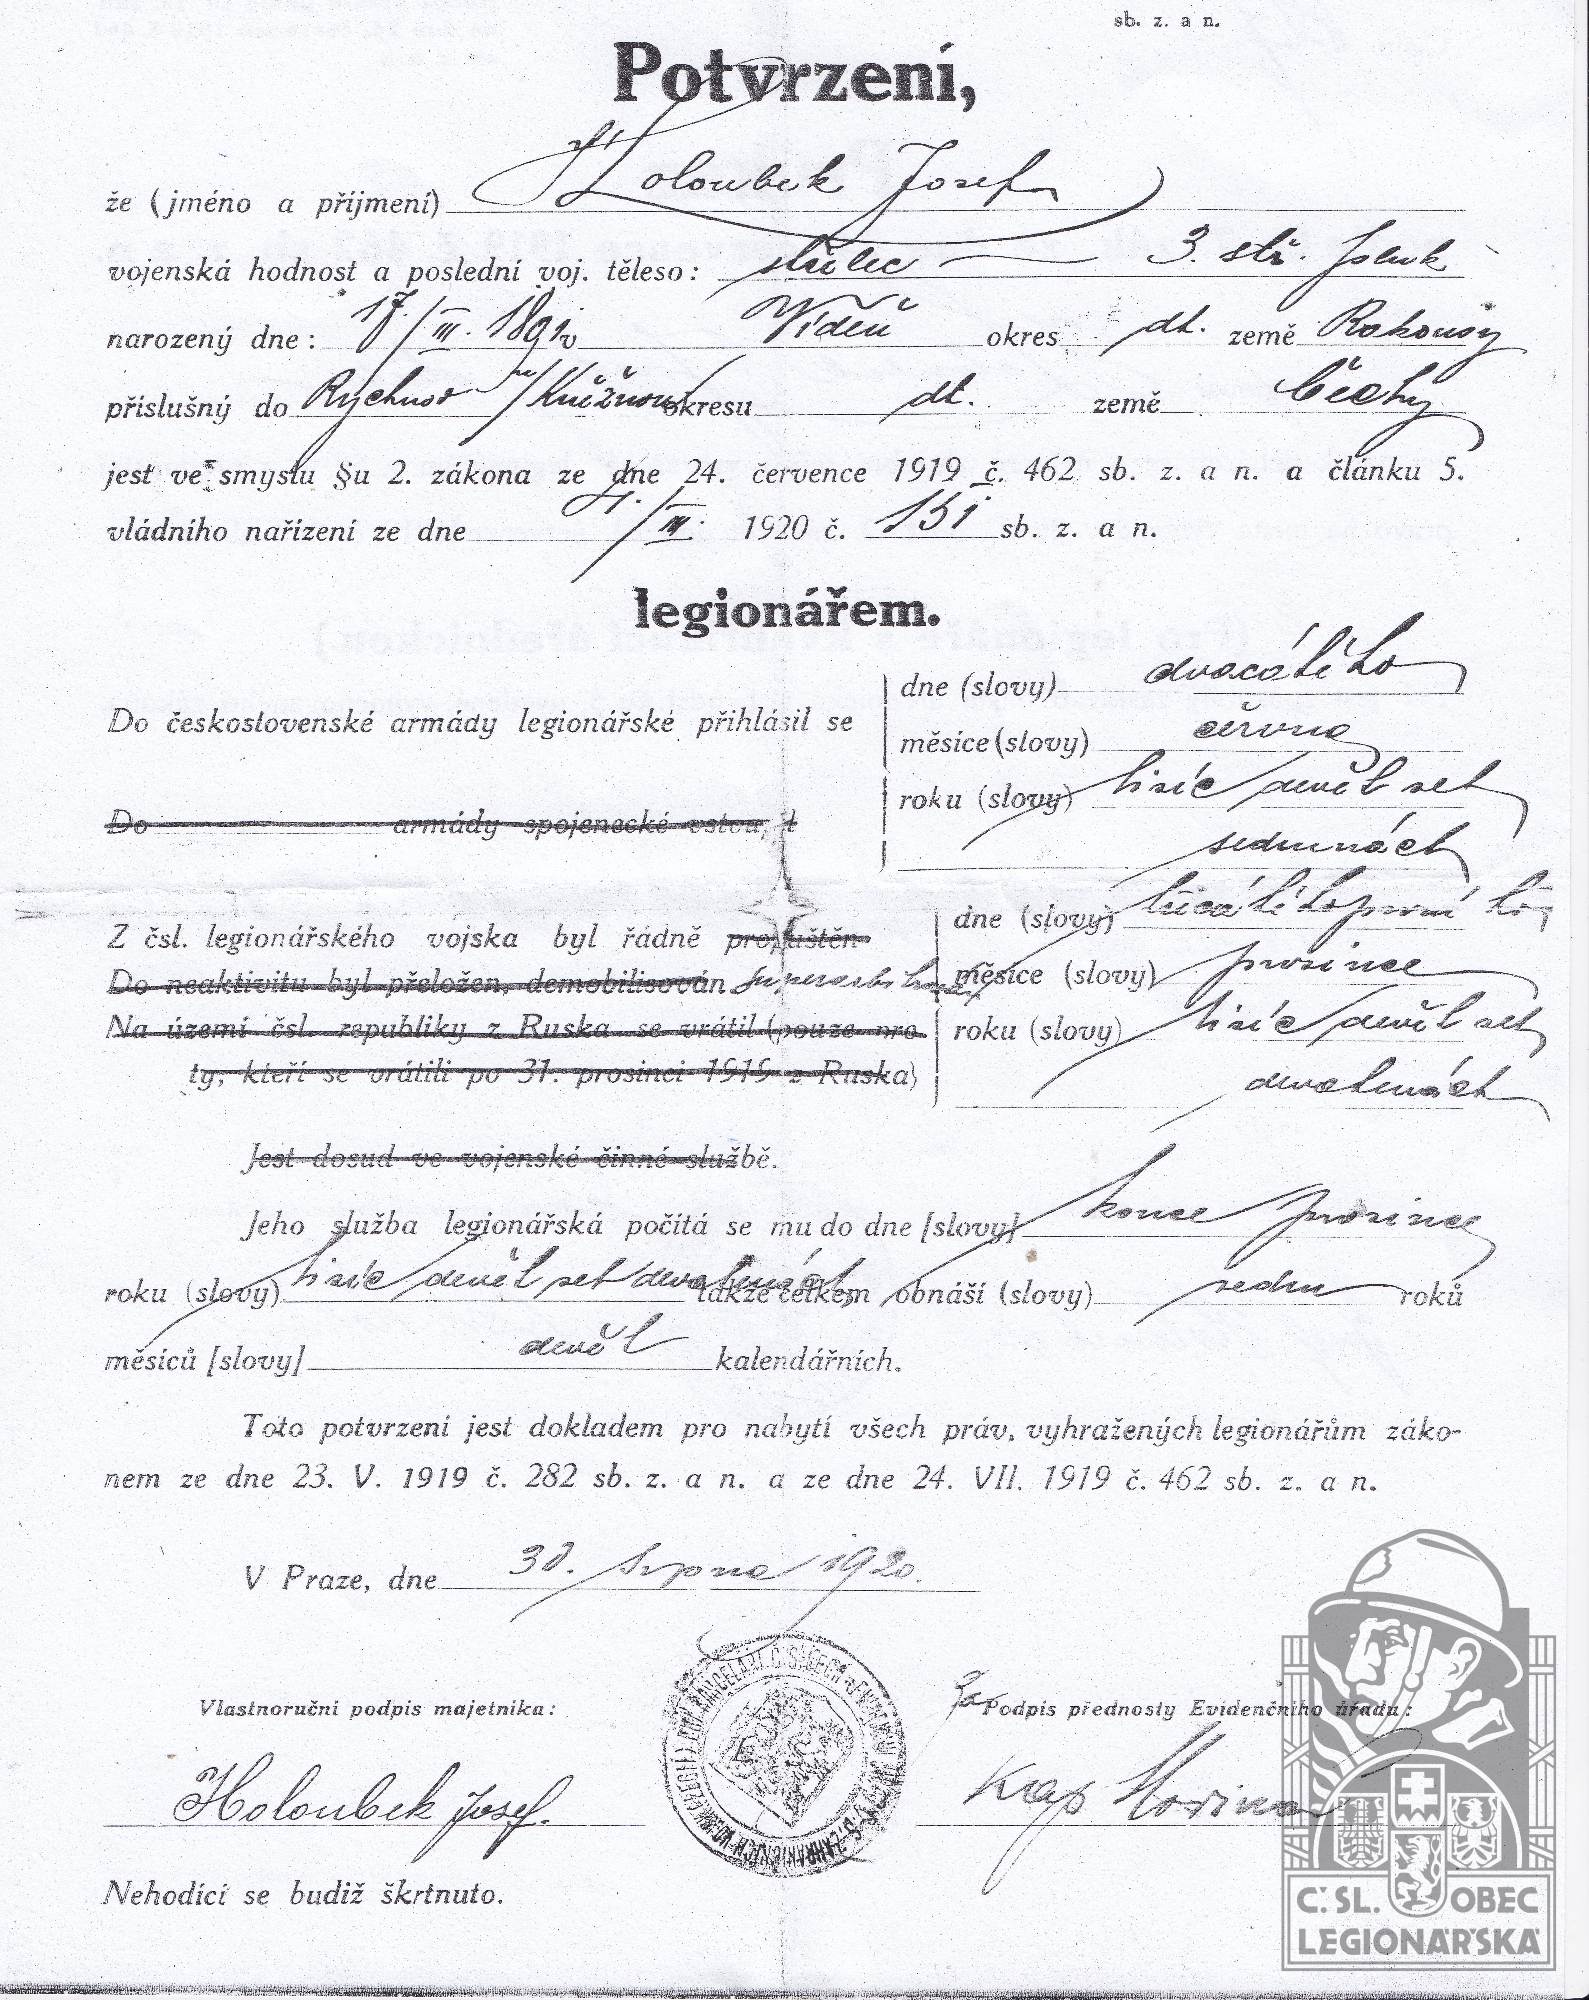 sb. z. a n.
Potvrzení,
že (jméno a příjmení) Holoubek Josef
vojenská hodnost a poslední voj. těleso: střelec — 3. stř. pluk
narozený dne: 17./III. 1891 v Vídeň okres dt. země Rakousy
příslušný do Rychnov n/Kněžnou okresu dt. země Čechy
jest ve smyslu §u 2. zákona ze dne 24. července 1919 č. 462 sb. z. a n. a článku 5.
vládního nařízení ze dne 4./III. 1920 č. 151 sb. z. a n.
legionářem.
Do československé armády legionářské přihlásil se
dne (slovy) dvacátého
měsíce (slovy) června
roku (slovy) tisíc devět set
sedmnáct
Do armády spojenecké vstou, t
Z čsl. legionářského vojska byl řádně propuštěn
dne (slovy) třicátého první ho
Do neaktivitu byl přeložen, demobilisován superarbitrován
měsíce (slovy) prosince
Na území čsl. republiky z Ruska se vrátil (pouze pro
roku (slovy) tisíc devět set
ty, kteří se vrátili po 31. prosinci 1919 z Ruska)
devatenáct
Jest dosud ve vojenské činné službě.
Jeho služba legionářská počítá se mu do dne [slovy] konce prosince
roku (slovy) tisíc devět set devatenáct takže celkem obnáší (slovy) sedm roků
měsíců [slovy] devět kalendářních.
Toto potvrzení jest dokladem pro nabytí všech práv, vyhražených legionářům záko-
nem ze dne 23. V. 1919 č. 282 sb. z. a n. a ze dne 24. VII. 1919 č. 462 sb. z. a n.
V Praze, dne 30. srpna 1920.
Vlastnoruční podpis majetníka:
Za Podpis přednosty Evidenčního úřadu:
Holoubek Josef.
Kap
Nehodící se budiž škrtnuto.
Č.SL. OBEC
LEGIONÁŘSKÁ